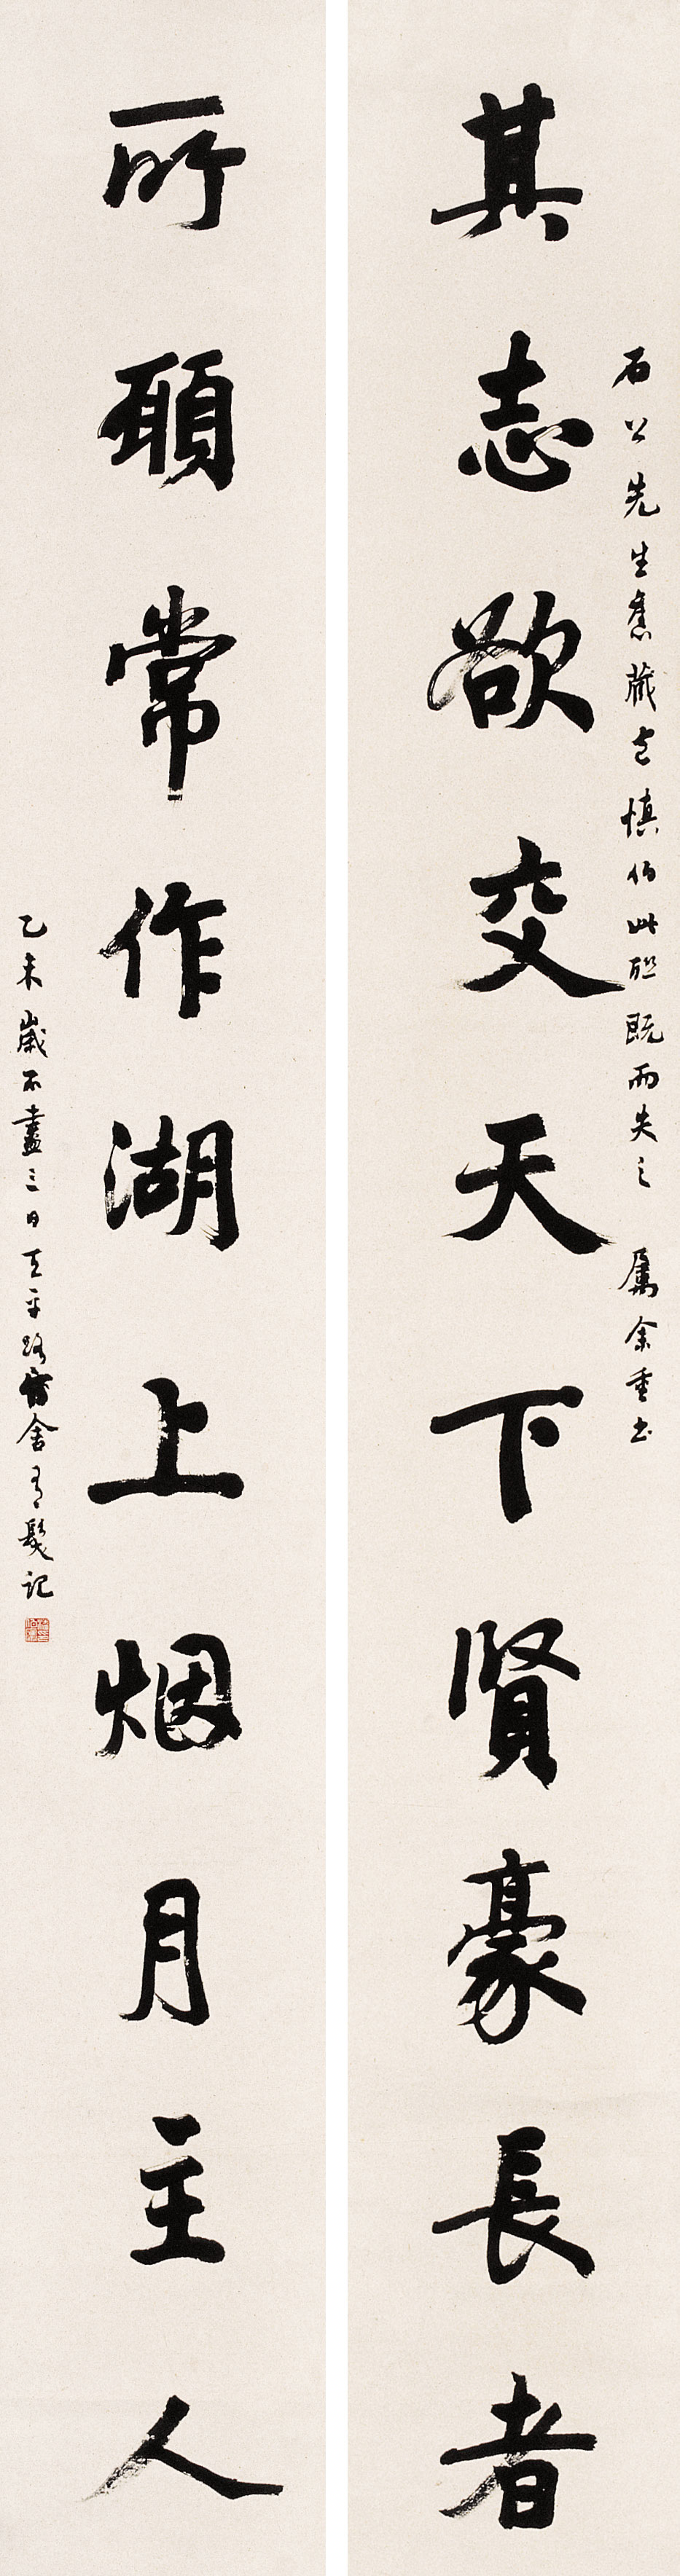 石公先生舊藏包慎伯此聯既而失之 屬余重書
其志欲交天下賢豪長者
所願常作湖上烟月主人
乙未歲不盡三日天平路舍髮記